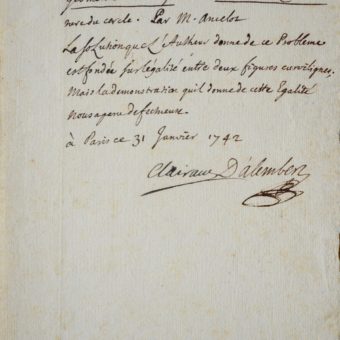 ture du cercle. Par M. Anclot
La solution que L'Autheur donne de ce Probleme
est fondée sur légalité entre deux figures curvilignes.
Mais la demonstration qu'il donne de cette Egalité
nous a paru defectueuse.
à Paris ce 31 Janvier 1742
Clairaut D'alembert